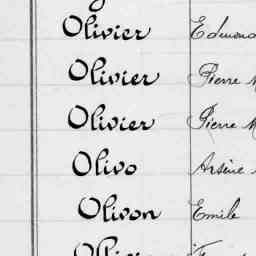 Olivier Edmond
Olivier Pierre M
Olivier Pierre M
Olivo Arsène
Olivon Emile